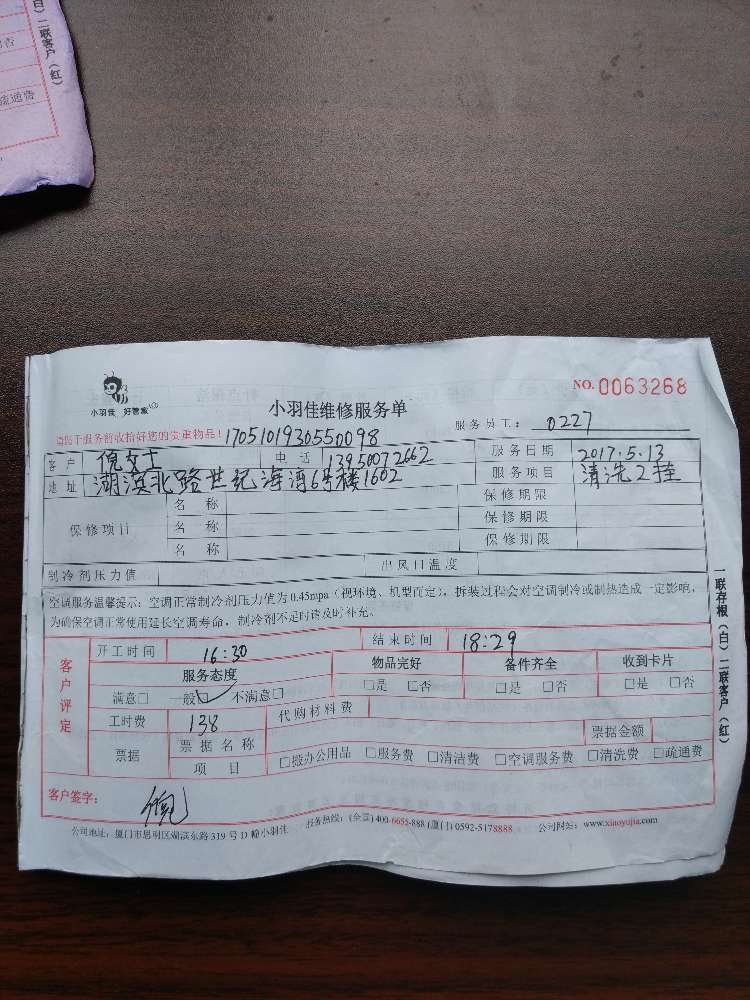 白）二联客户（红）
疏通费
小羽佳 好管家
NO. 0063268
小羽佳维修服务单
服务员工： 0227
请您于服务前收拾好您的贵重物品！1705101930550098
客户 倪女士 电话 13950072662 服务日期 2017.5.13
地址 湖滨北路世纪海湾6号楼1602 服务项目 清洗2挂
保修项目
名 称 保修期限
名 称 保修期限
名 称 保修期限
制冷剂压力值 出风口温度
空调服务温馨提示：空调正常制冷剂压力值为0.45mpa（视环境、机型而定），拆装过程会对空调制冷或制热造成一定影响，
为确保空调正常使用延长空调寿命，制冷剂不足时请及时补充。
客户评定
开工时间 16:30 结束时间 18:29
服务态度 物品完好 备件齐全 收到卡片
满意□ 一般□ 不满意□ □是 □否 □是 □否 □是 □否
工时费 138 代购材料费
票据 票据名称 票据金额
项 目 □搬办公用品 □服务费 □清洁费 □空调服务费 □清洗费 □疏通费
客户签字： 倪
公司地址：厦门市思明区湖滨东路319号D幢小羽佳 服务热线：(全国)400-6655-888 (厦门)0592-5178888 公司网站：www.xiaoyujia.com
一联存根（白）二联客户（红）